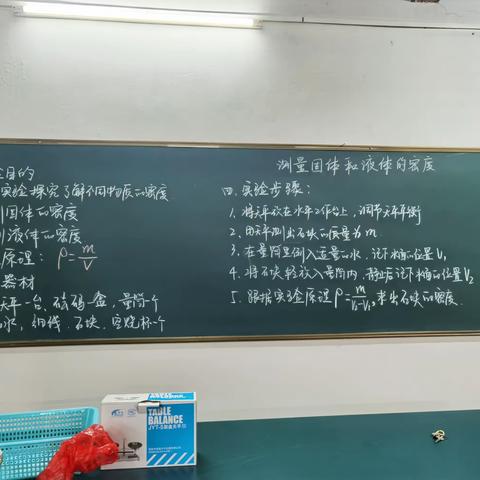 测量固体和液体的密度
实验目的
实验探究了解不同物质的密度
固体的密度
液体的密度
原理：ρ=m/V
器材
天平一台、砝码一盒、量筒一个
水、细线、石块、空烧杯一个
四、实验步骤：
1、将天平放在水平工作台上，调节天平平衡
2、用天平测出石块的质量为m
3、在量筒里倒入适量的水，记下水面的位置V₁
4、将石块轻放入量筒内，静止后记下水面的位置V₂
5、跟据实验原理ρ=m/V₂-V₁，求出石块的密度.
TABLE
BALANCE
JYT-5